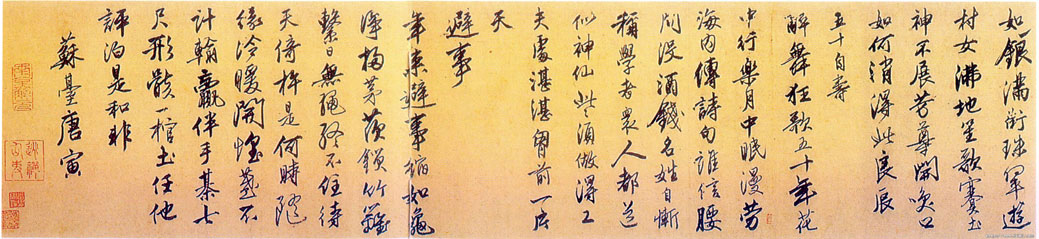 如銀滿街珠翠遊
村女沸地笙歌賽社
神不展芳尊開笑口
如何消得此良辰
五十自壽
醉舞狂歌五十年花
中行樂月中眠漫勞
海內傳詩句誰信腰
間沒酒錢名姓自慚
稱學者衆人都道
似神仙些須做得工
夫處湛湛胸前一片
天
避事
年來避事縮如龜
淨掃茅茨鎖竹籬
繫日無繩終不住待
天倚杵是何時隨
緣冷暖開煌藝不
計輸贏伴手棊七
尺形骸一棺土任他
評泊是和非
蘇臺唐寅